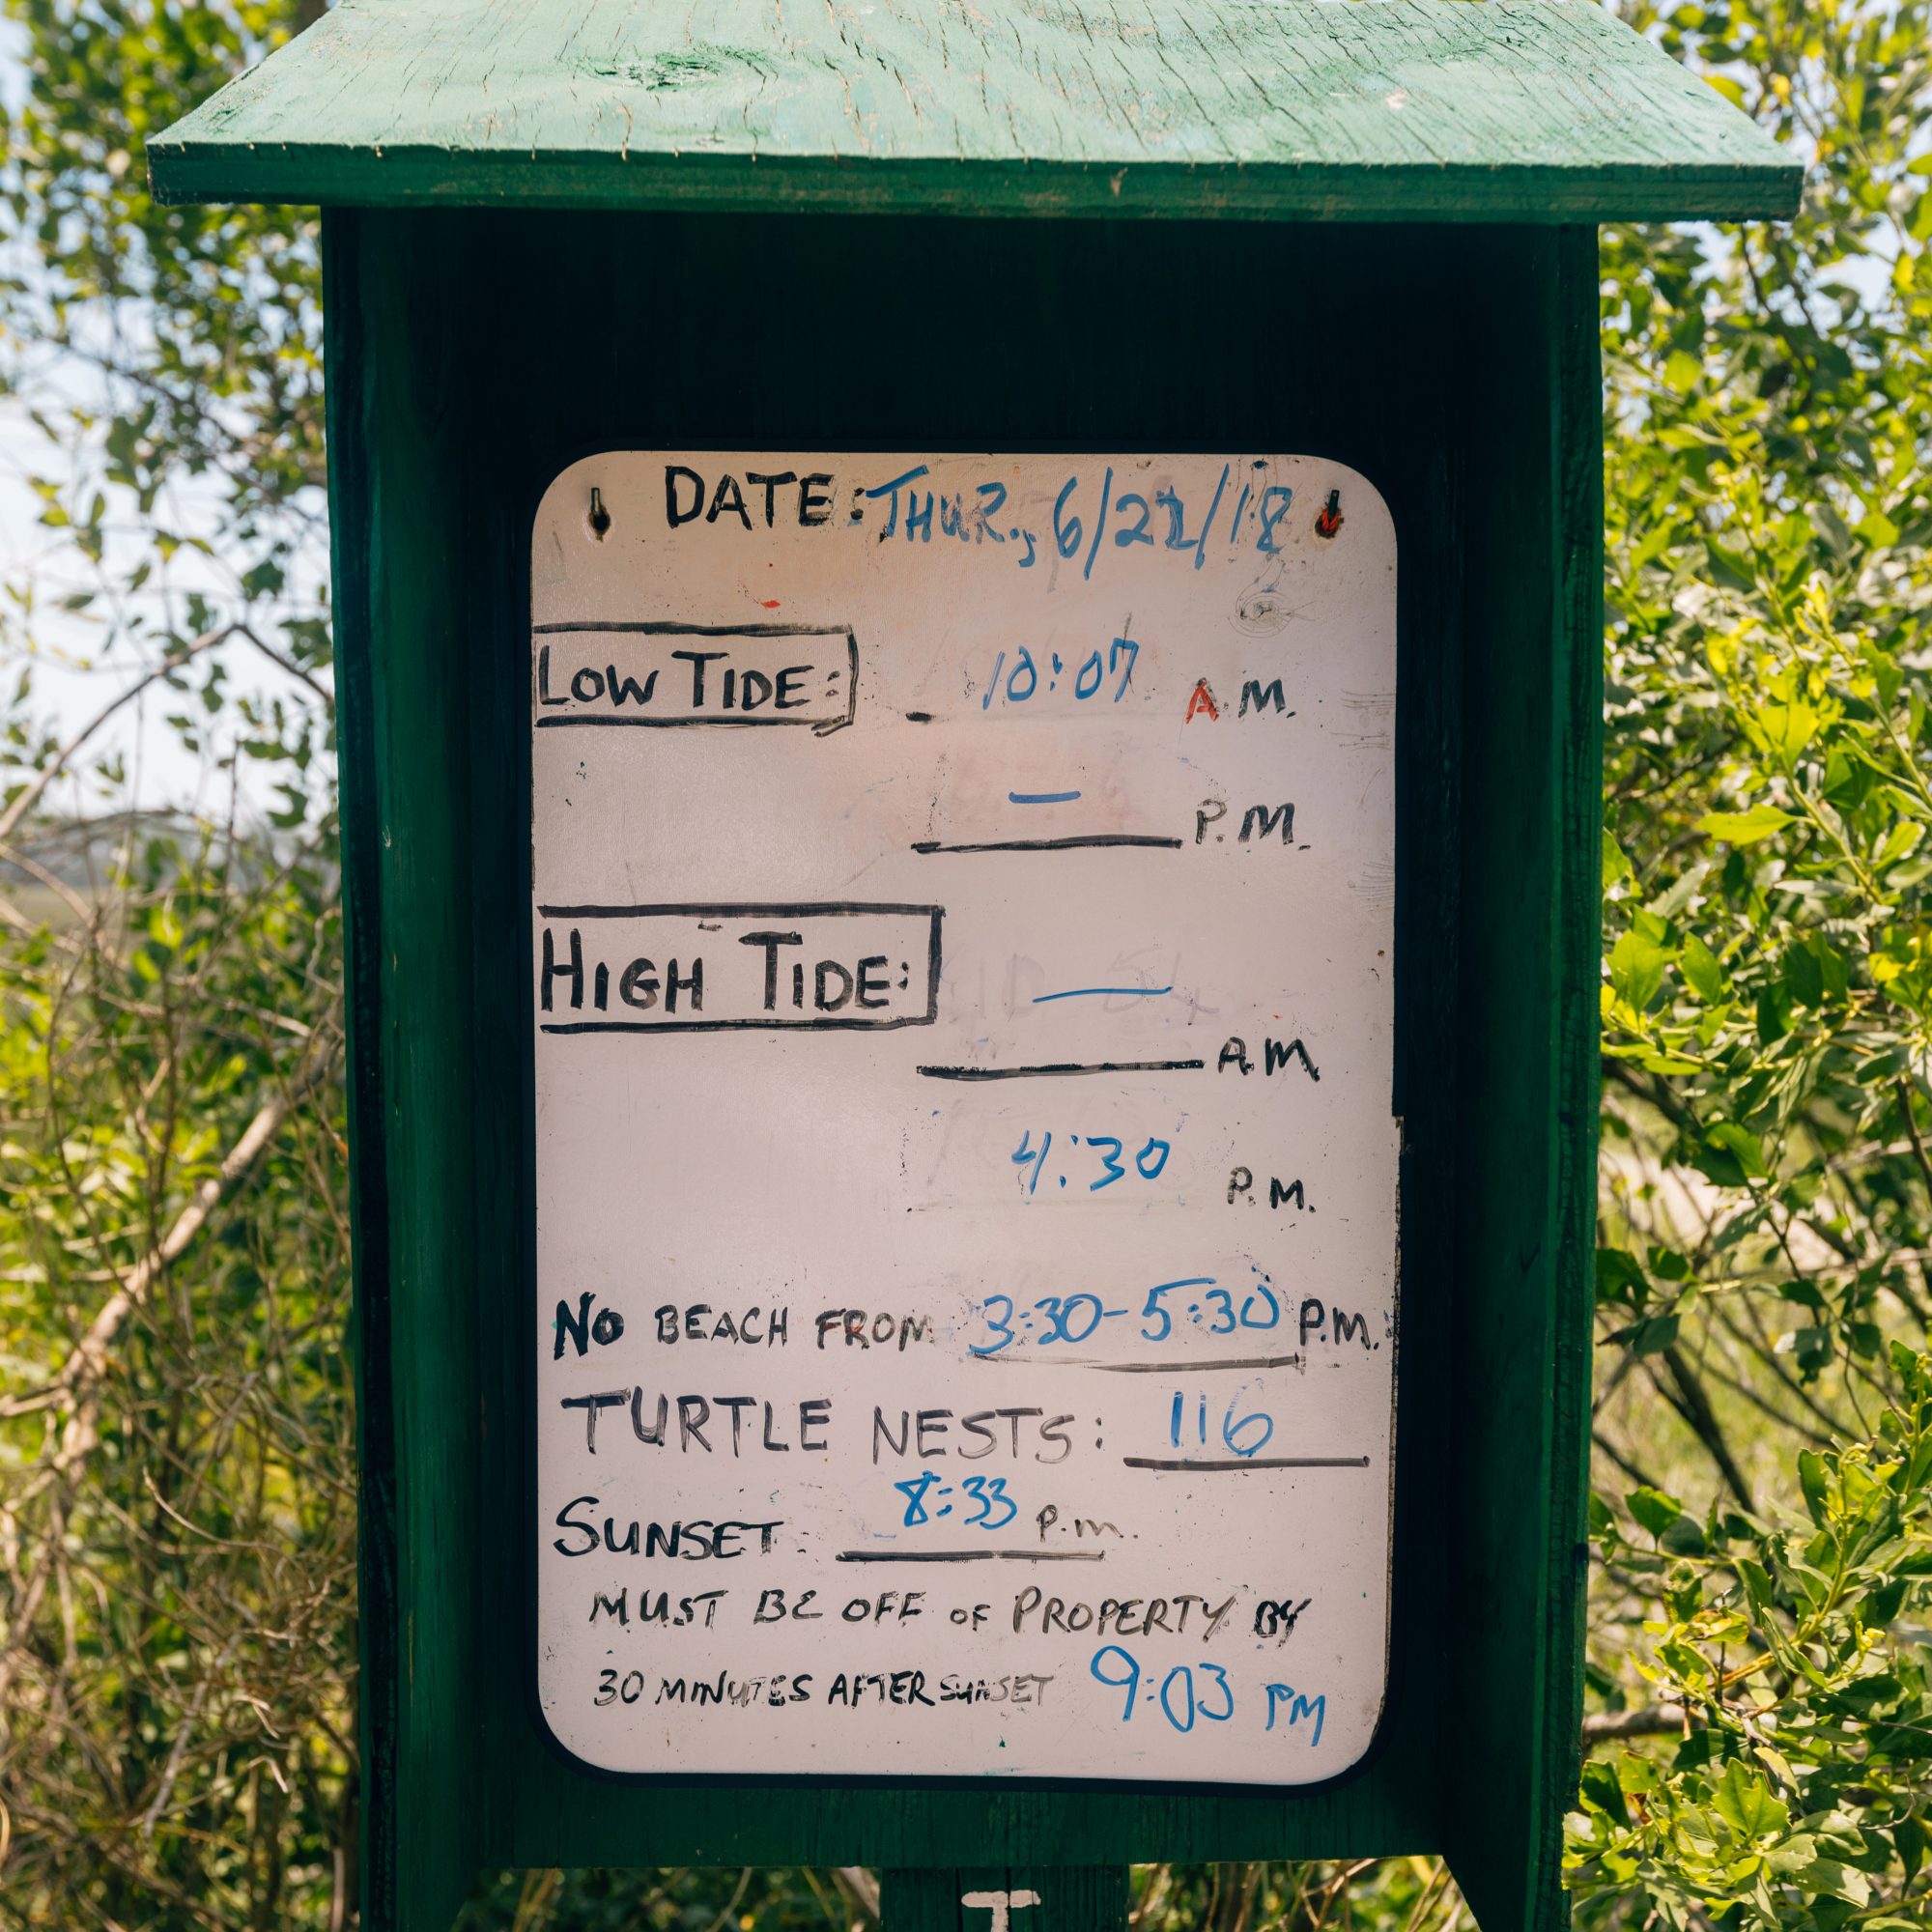 DATE: THUR., 6/21/18
LOW TIDE: 10:07 A.M.
— P.M.
HIGH TIDE: —
A.M
4:30 P.M.
NO BEACH FROM 3:30-5:30 P.M.
TURTLE NESTS: 116
SUNSET: 8:33 p.m.
MUST BE OFF OF PROPERTY BY
30 MINUTES AFTER SUNSET 9:03 PM
T